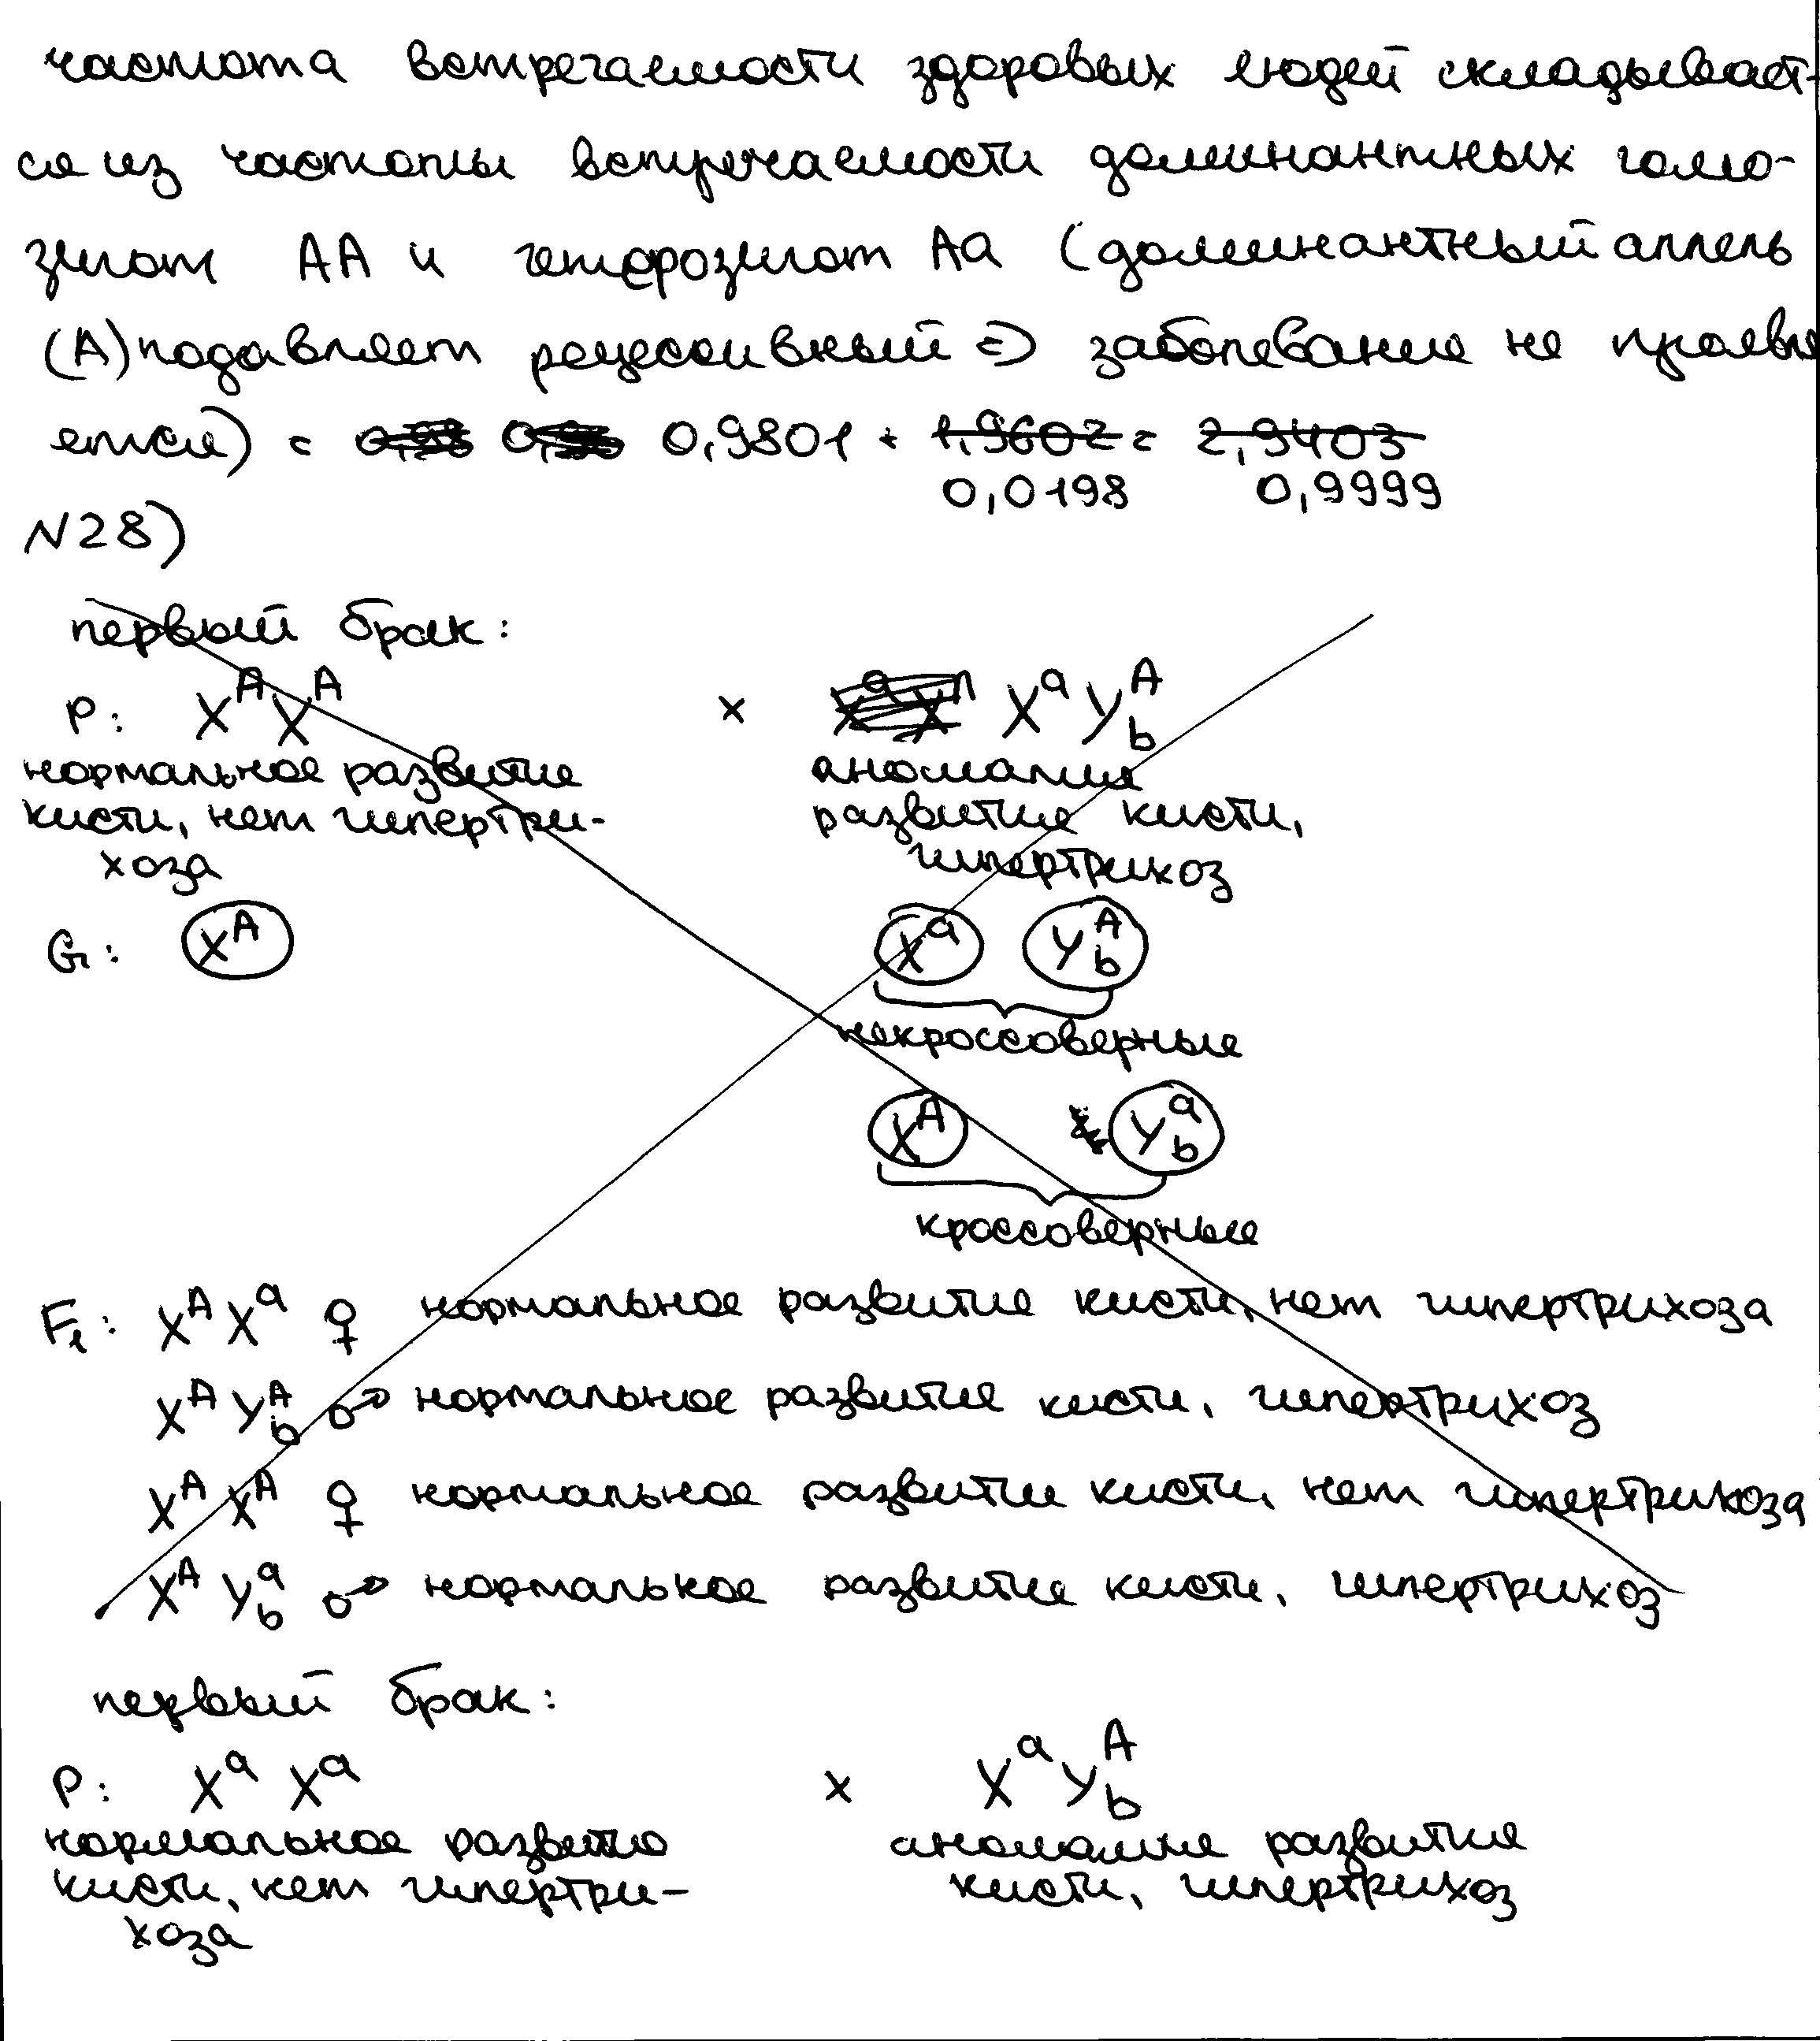 частота встречаемости здоровых людей складывает-
ся из частоты встречаемости доминантных гомо-
зигот АА и гетерозигот Аа (доминантный аллель
(А) подавляет рецессивный => заболевание не проявля
ется) = 0,9801 + 1,9602 = 2,9403
0,0198 0,9999
N28)
первый брак:
P: X^A X^A x X^a Y^A_b
нормальное развитие аномалия
кисти, нет гипертри- развития кисти,
хоза гипертрихоз
G: X^A X^a Y^A_b
некроссоверные
X^A Y^a_b
кроссоверные
F1: X^A X^a ♀ нормальное развитие кисти, нет гипертрихоза
X^A Y^A_b ♂ нормальное развитие кисти, гипертрихоз
X^A X^A ♀ нормальное развитие кисти, нет гипертрихоза
X^A Y^a_b ♂ нормальное развитие кисти, гипертрихоз
первый брак:
P: X^a X^a x X^a Y^A_b
нормальное развитие аномалия развития
кисти, нет гипертри- кисти, гипертрихоз
хоза